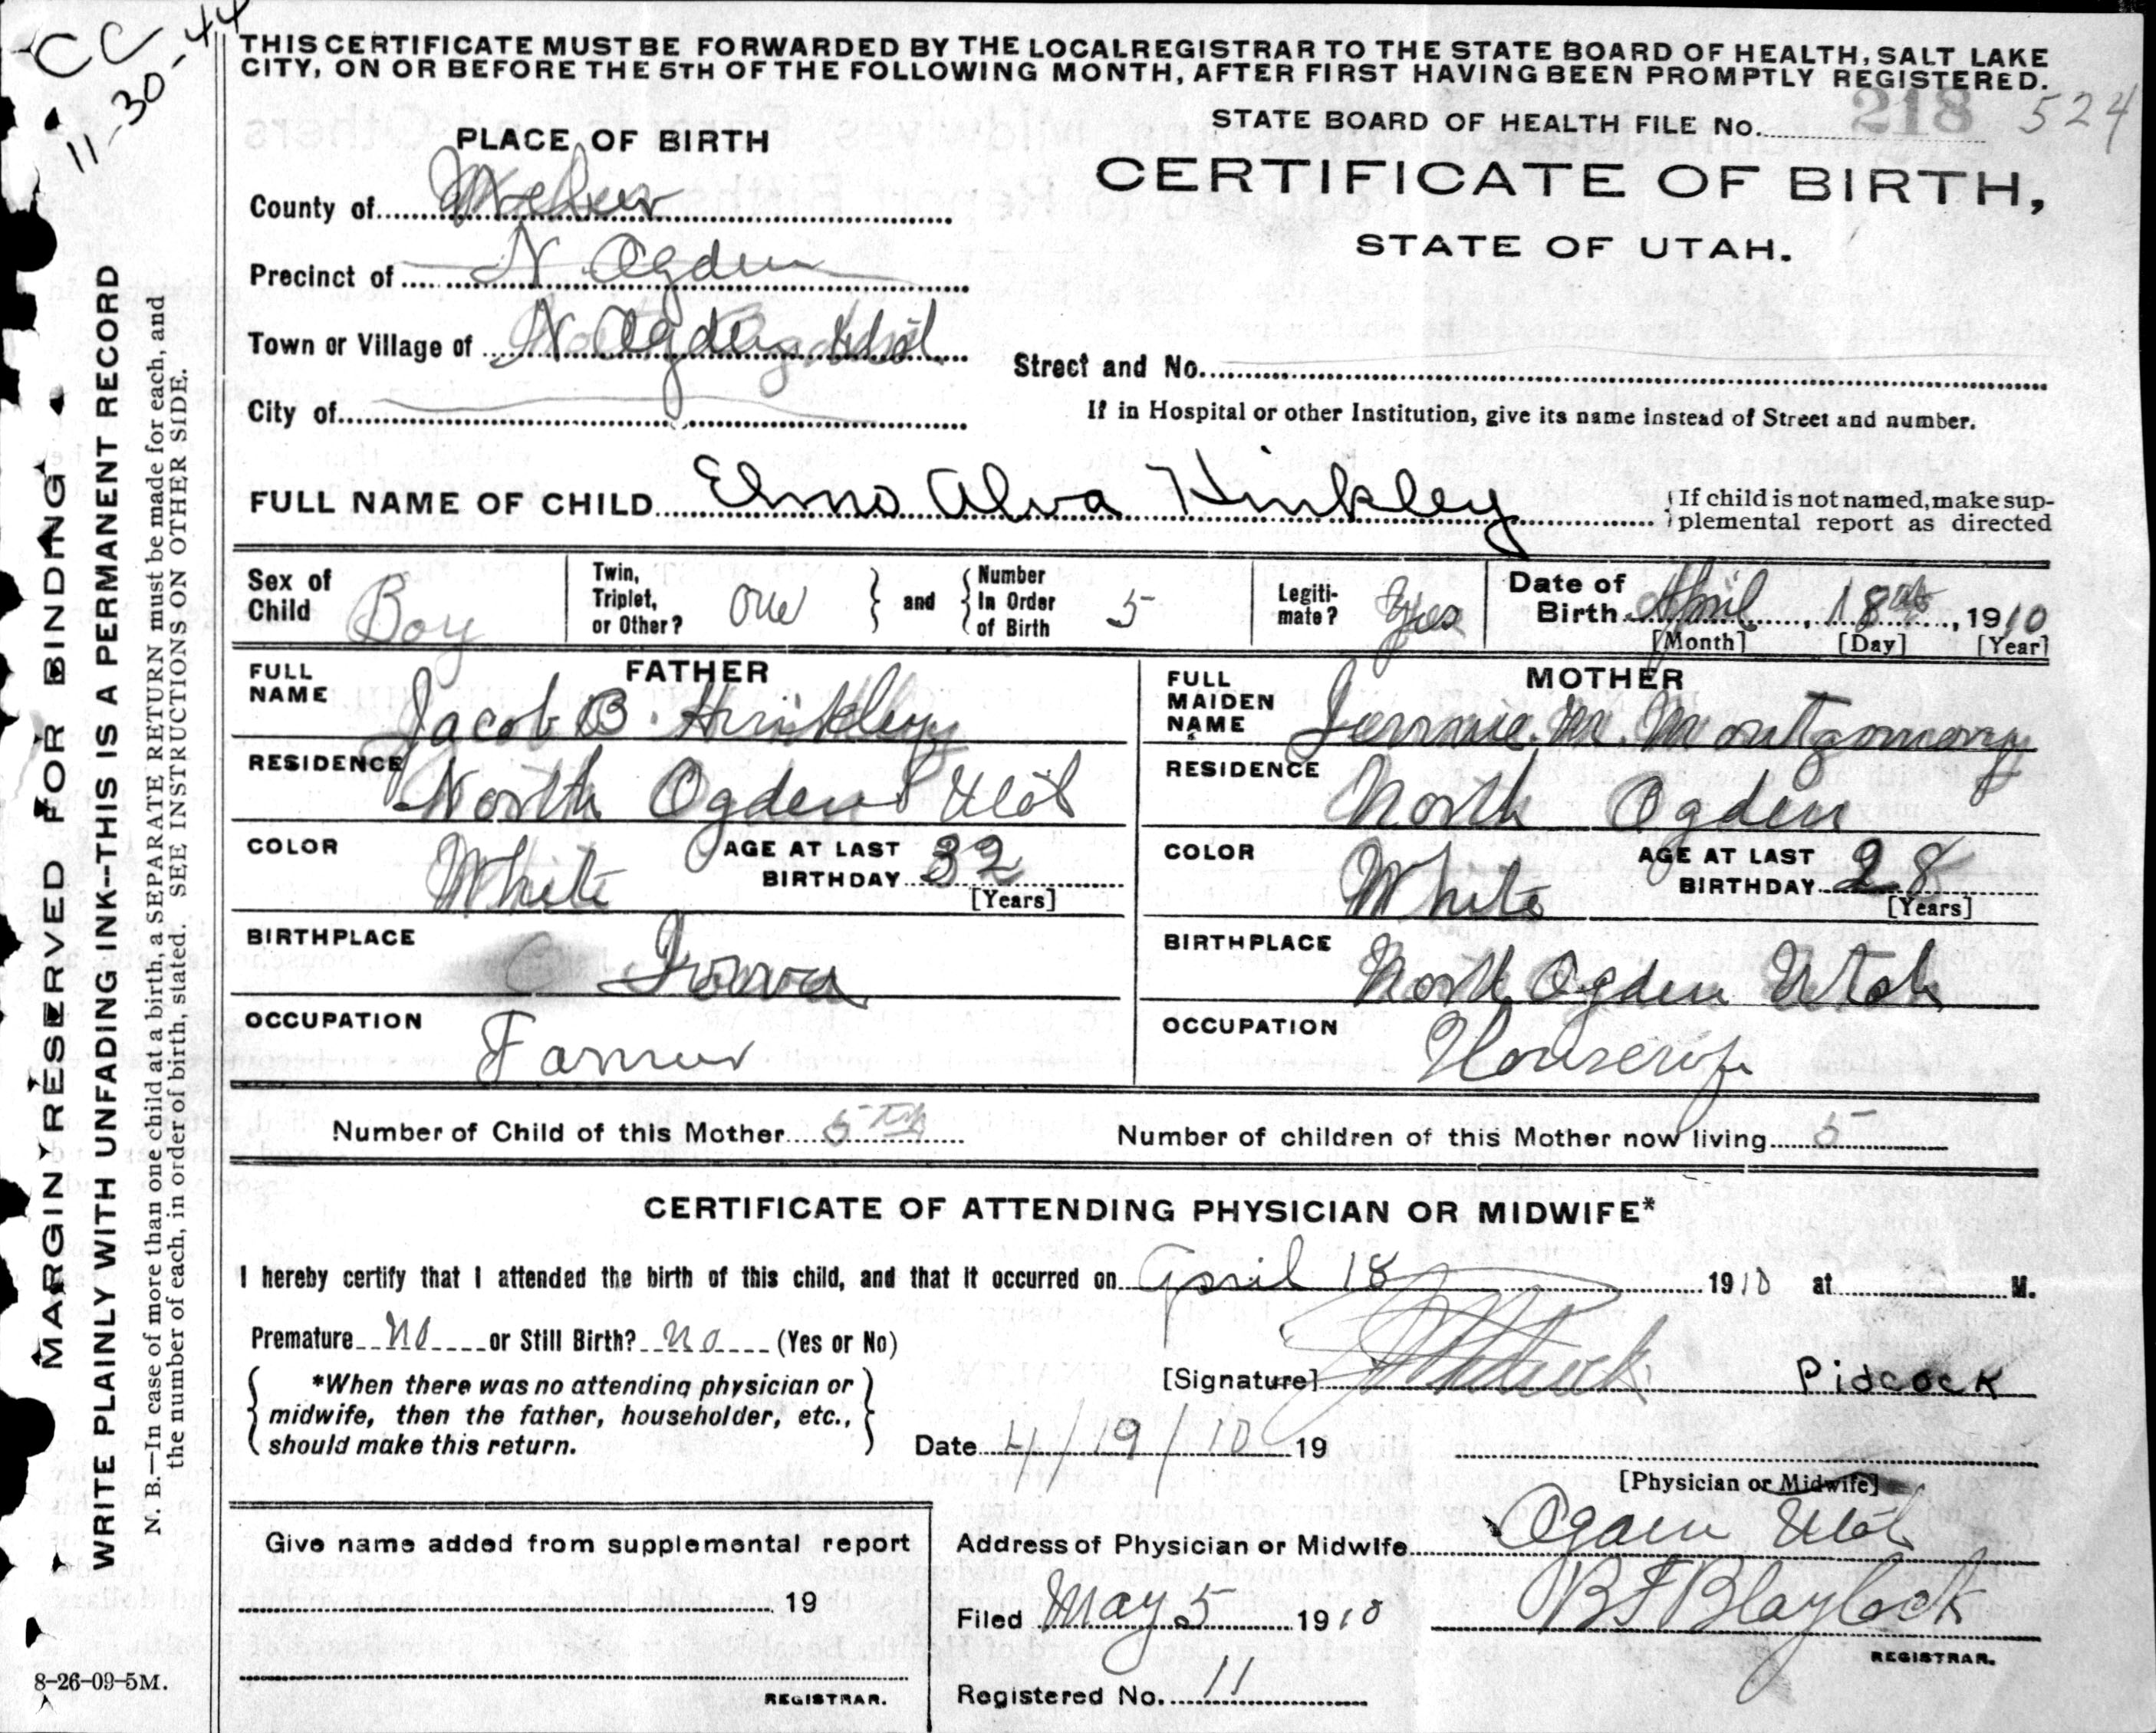 CC
11-30-44
THIS CERTIFICATE MUST BE FORWARDED BY THE LOCAL REGISTRAR TO THE STATE BOARD OF HEALTH, SALT LAKE
CITY, ON OR BEFORE THE 5TH OF THE FOLLOWING MONTH, AFTER FIRST HAVING BEEN PROMPTLY REGISTERED.
STATE BOARD OF HEALTH FILE No. 218 524
PLACE OF BIRTH
CERTIFICATE OF BIRTH,
STATE OF UTAH.
County of Weber
Precinct of N. Ogden
Town or Village of N Ogden Utah
Street and No.
City of
If in Hospital or other Institution, give its name instead of Street and number.
FULL NAME OF CHILD Elmo Alva Hinkley
If child is not named, make sup-
plemental report as directed
Sex of Child Boy
Twin, Triplet, or Other? one and Number In Order of Birth 5
Legiti-mate? Yes
Date of Birth April, 18th, 1910
[Month] [Day] [Year]
FATHER
FULL NAME Jacob B. Hinkley
RESIDENCE North Ogden Utah
COLOR White AGE AT LAST BIRTHDAY 32
[Years]
BIRTHPLACE Iowa
OCCUPATION Farmer
MOTHER
FULL MAIDEN NAME Jennie. M. Montgomery
RESIDENCE North Ogden
COLOR White AGE AT LAST BIRTHDAY 28
[Years]
BIRTHPLACE North Ogden Utah
OCCUPATION Housewife
Number of Child of this Mother 5th Number of children of this Mother now living 5
CERTIFICATE OF ATTENDING PHYSICIAN OR MIDWIFE*
I hereby certify that I attended the birth of this child, and that it occurred on April 18 1910 at M.
Premature No or Still Birth? No (Yes or No)
*When there was no attending physician or
midwife, then the father, householder, etc.,
should make this return.
[Signature] Pidcock
Date 4/19/10 19
[Physician or Midwife]
Give name added from supplemental report
19
REGISTRAR.
Address of Physician or Midwife Ogden Utah
Filed May 5 1910 B F Blaylock
REGISTRAR.
Registered No. 11
MARGIN RESERVED FOR BINDING
WRITE PLAINLY WITH UNFADING INK--THIS IS A PERMANENT RECORD
N. B.—In case of more than one child at a birth, a SEPARATE RETURN must be made for each, and
the number of each, in order of birth, stated. SEE INSTRUCTIONS ON OTHER SIDE.
8-26-09-5M.